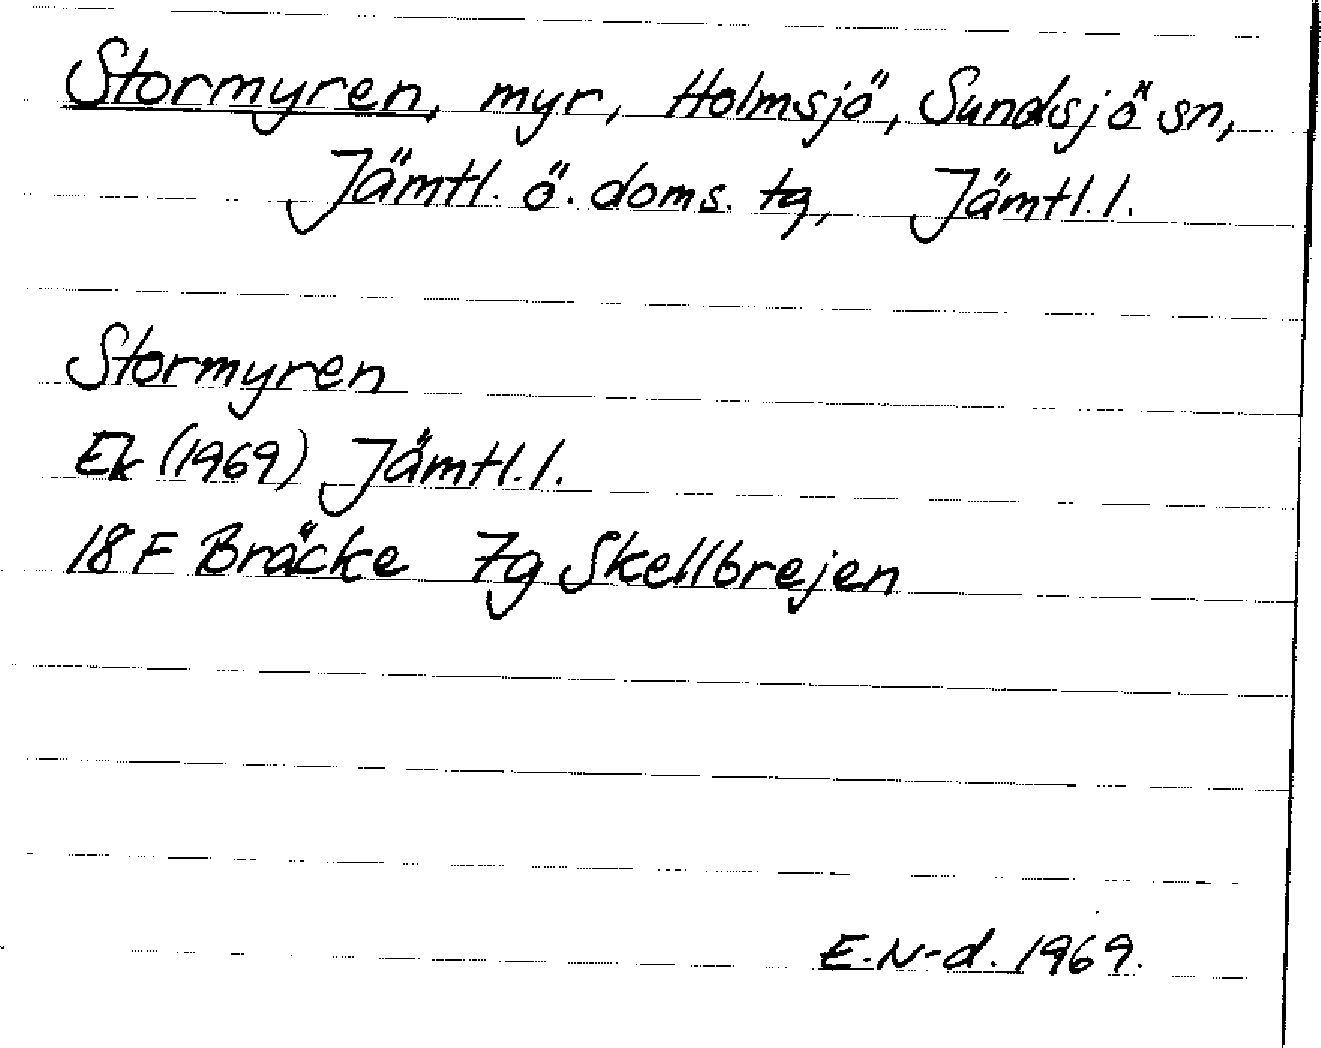 Stormyren, myr, Holmsjö, Sundsjö sn,
Jämtl. ö. doms. tg, Jämtl. l.
Stormyren
Ek (1969) Jämtl. l.
18 F Bräcke 7g Skellbrejen
E. N-d. 1969.